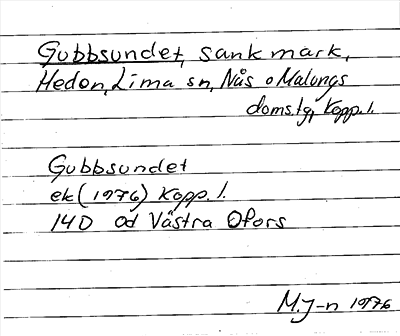 Gubbsundet, sank mark,
Hedon, Lima sn, Nås o Malungs
doms.lg, Kopp. l.
Gubbsundet
ek (1976) Kopp. l.
14D Od Västra Ofors
M.J-n 1976